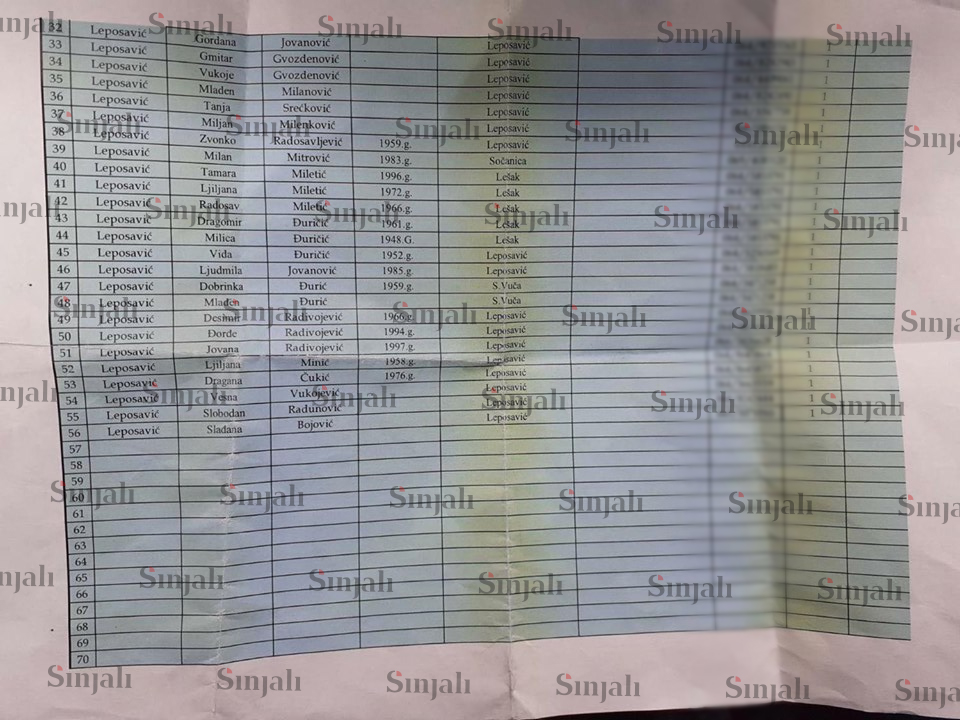 32 Leposavić Gordana Jovanović Leposavić 1
33 Leposavić Gmitar Gvozdenović Leposavić 1
34 Leposavić Vukoje Gvozdenović Leposavić 1
35 Leposavić Mladen Milanović Leposavić 1
36 Leposavić Tanja Srećković Leposavić 1
37 Leposavić Miljan Milenković Leposavić 1
38 Leposavić Zvonko Radosavljević 1959.g. Leposavić 1
39 Leposavić Milan Mitrović 1983.g. Sočanica 1
40 Leposavić Tamara Miletić 1996.g. Lešak 1
41 Leposavić Ljiljana Miletić 1972.g. Lešak 1
42 Leposavić Radosav Miletić 1966.g. Lešak 1
43 Leposavić Dragomir Đuričić 1961.g. Lešak 1
44 Leposavić Milica Đuričić 1948.G. Lešak 1
45 Leposavić Vida Đuričić 1952.g. Leposavić 1
46 Leposavić Ljudmila Jovanović 1985.g. Leposavić 1
47 Leposavić Dobrinka Đurić 1959.g. S.Vuča 1
48 Leposavić Mladen Đurić S.Vuča 1
49 Leposavić Desimir Radivojević 1966.g. Leposavić 1
50 Leposavić Đorđe Radivojević 1994.g. Leposavić 1
51 Leposavić Jovana Radivojević 1997.g. Leposavić 1
52 Leposavić Ljiljana Minić 1958.g. Leposavić 1
53 Leposavić Dragana Čukić 1976.g. Leposavić 1
54 Leposavić Vesna Vukojević Leposavić 1
55 Leposavić Slobodan Radunović Leposavić 1
56 Leposavić Slađana Bojović Leposavić
57
58
59
60
61
62
63
64
65
66
67
68
69
70
Sinjali Sinjali Sinjali Sinjali Sinjali Sinjali